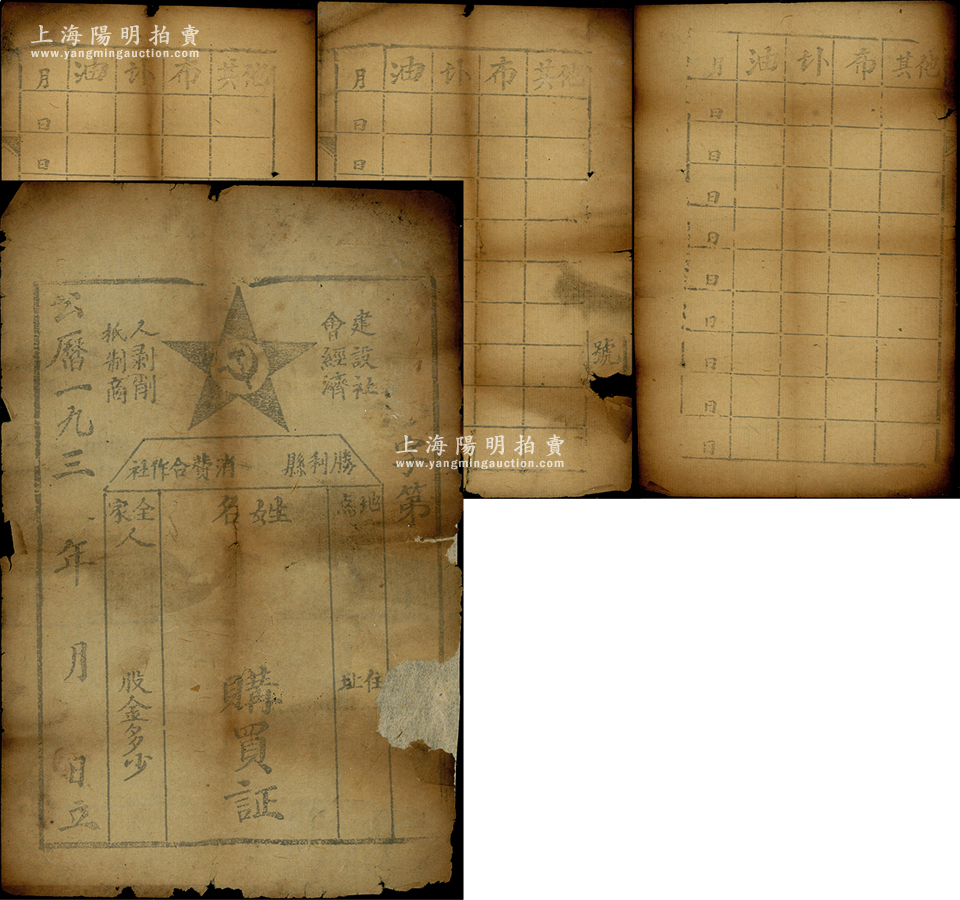 上海陽明拍賣
www.yangmingauction.com
月 油 卟 布 其他
日
日
月 油 卟 布 其他
日
日
號
月 油 卟 布 其他
日
日
日
日
日
日
日
日
日
建設社
會經濟
人剥削
抵制商
公曆一九三 年 月 日立
勝利縣 消費合作社
第
地点
住址
姓名
購買証
全家 人
股金多少
上海陽明拍賣
www.yangmingauction.com